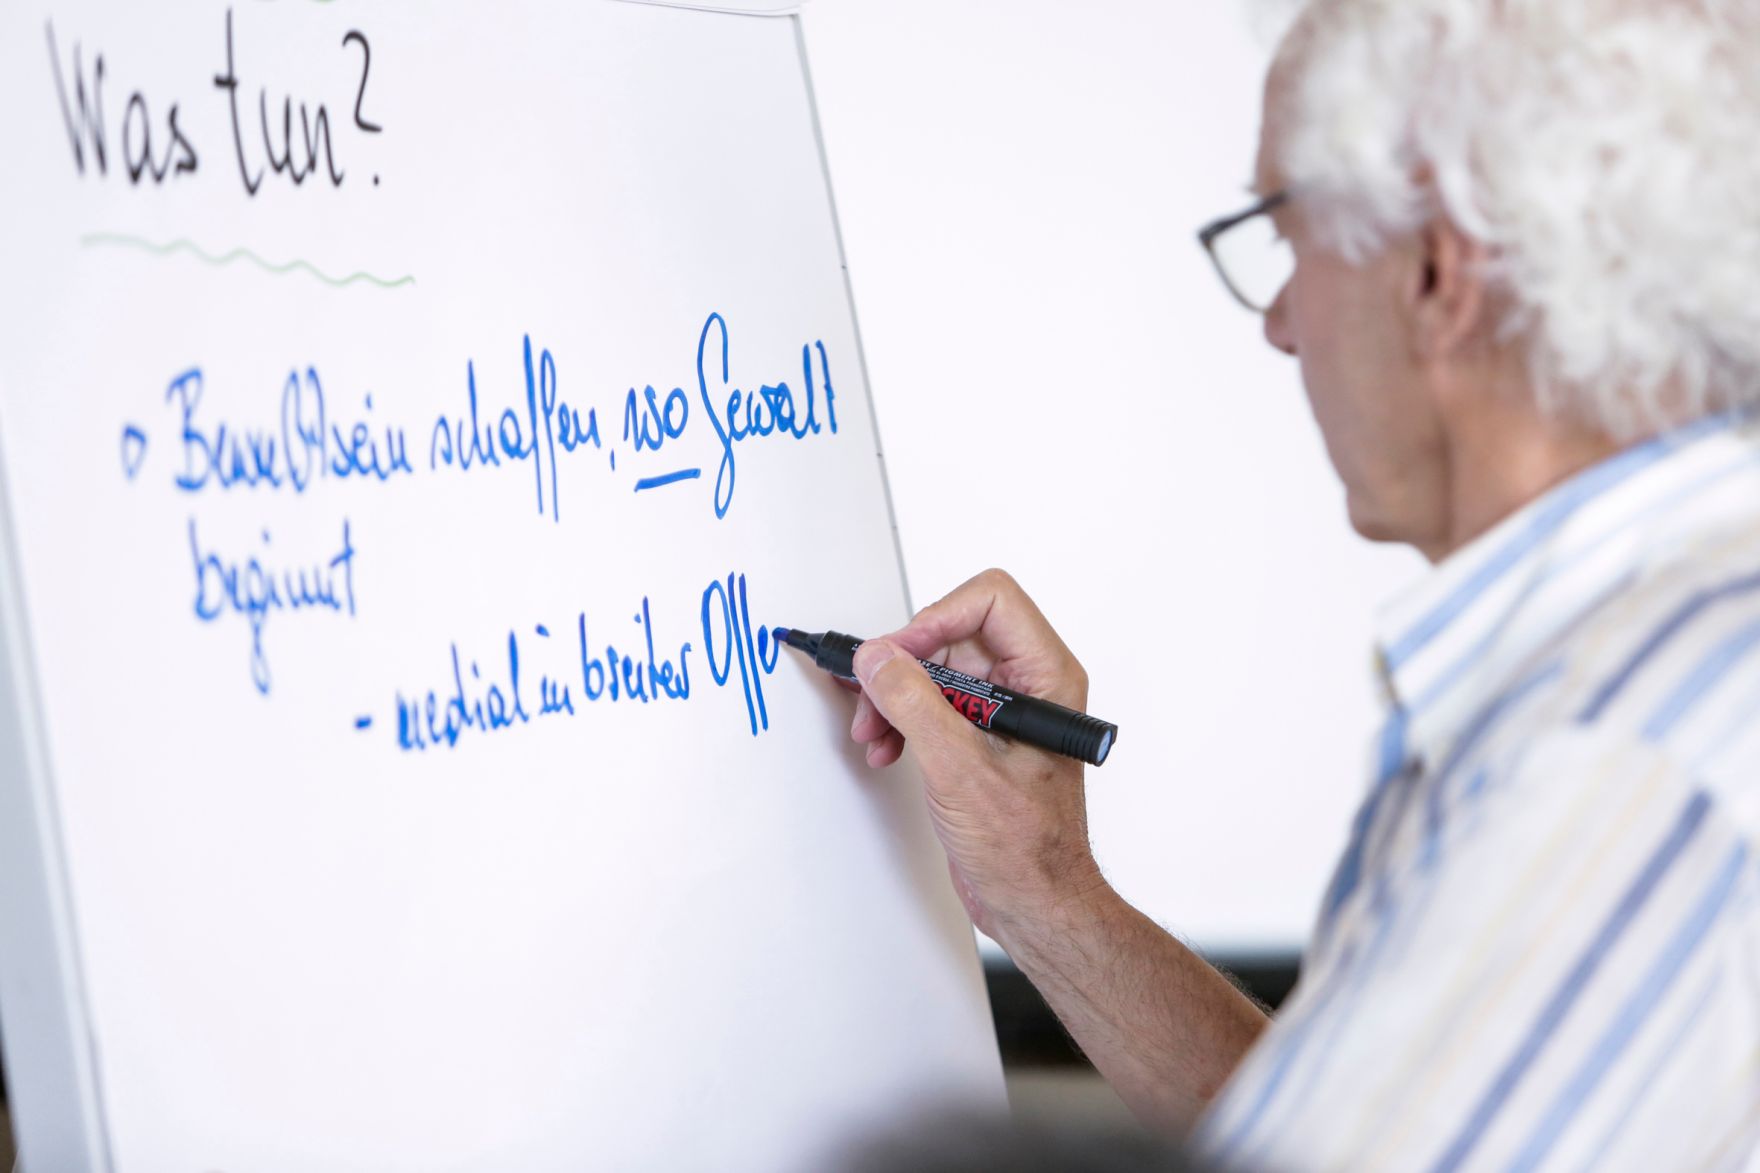 Was tun?
Bewußtsein schaffen, wo Gewalt
beginnt
- medial in breiter Offe
PIGMENT INK
CKEY